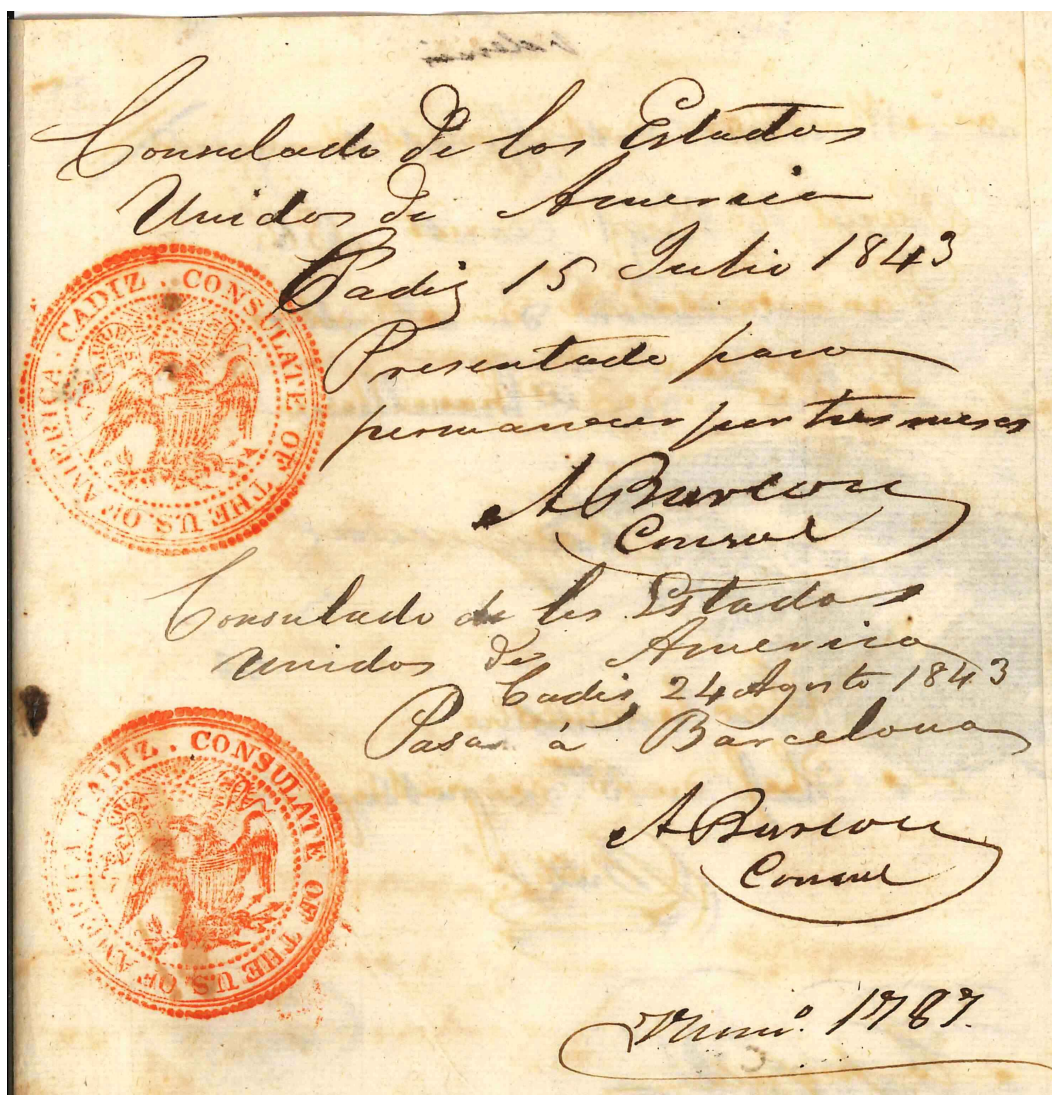 Consulado de los Estados
Unidos de America
Cadiz 15 Julio 1843
Presentado para
permanecer por tres meses
A Burton
Consul
CADIZ . CONSULATE OF THE U.S. OF AMERICA .
Consulado de los Estados
Unidos de America
Cadiz 24 Agosto 1843
Pasar á Barcelona
A Burton
Consul
CADIZ . CONSULATE OF THE U.S. OF AMERICA
Num.º 1787.